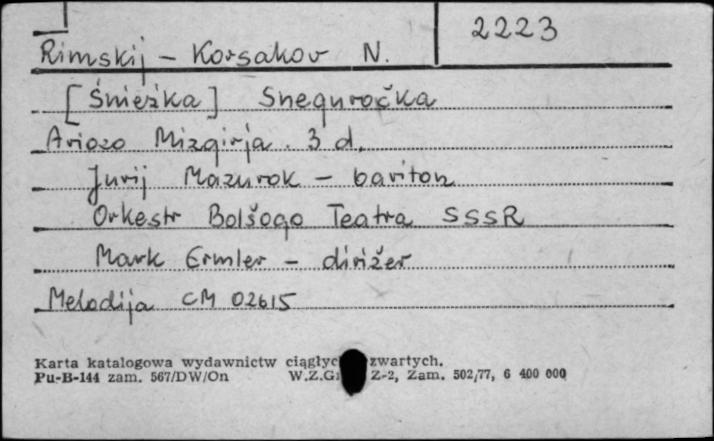 2223
Rimskij - Korsakov N.
[Śnieżka] Sneguročka
Ariozo Mizgirja. 3 d.
Jurij Mazurok - bariton
Orkestr Bolšogo Teatra SSSR
Mark Ermler - dirižer
Melodija CM 02615
Karta katalogowa wydawnictw zwartych.
Pu-B-144 zam. 567/DW/On Z-2, Zam. 502/77, 6 400 000